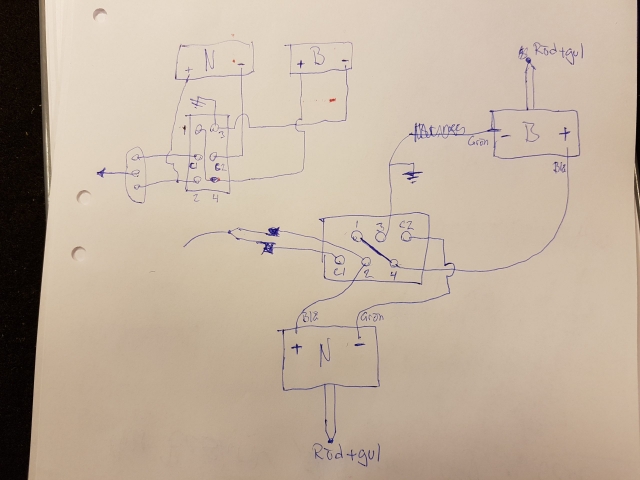 + N -
+ B -
1 3
C1 C2
2 4
Röd+gul
- B +
Grön
Blå
1 3 C2
C1 2 4
Blå Grön
+ N -
Röd+gul